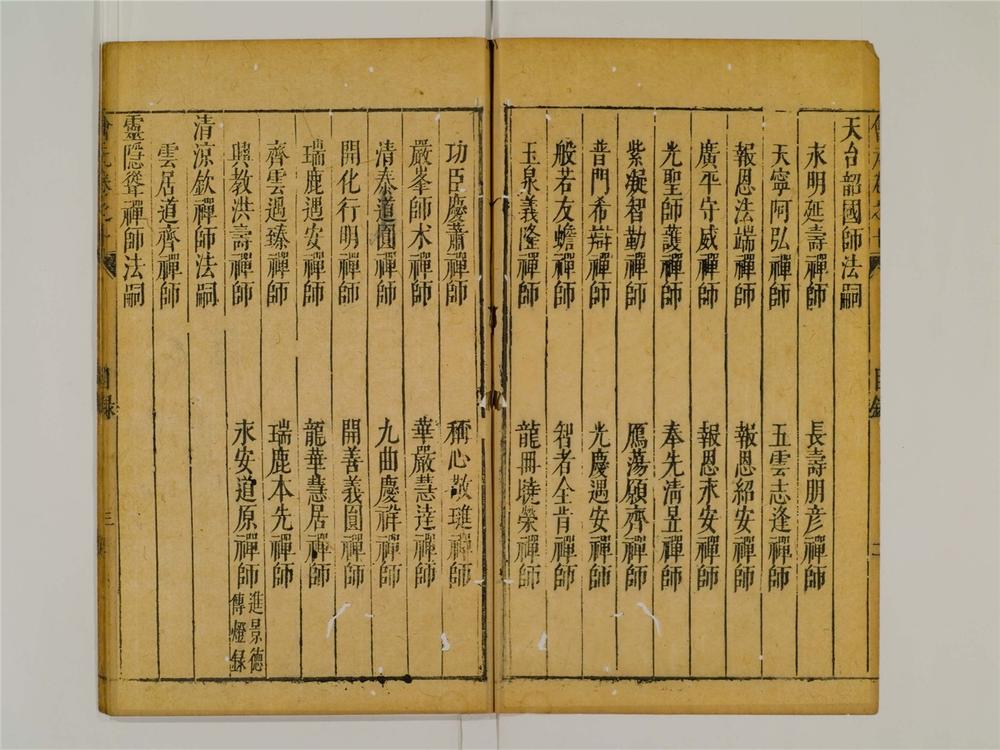 天台韶國師法嗣
永明延壽禪師 長壽朋彥禪師
天寧阿弘禪師 五雲志逢禪師
報恩法端禪師 報恩紹安禪師
廣平守威禪師 報恩永安禪師
光聖師護禪師 奉先清昱禪師
紫凝智勤禪師 鴈蕩願齊禪師
普門希辯禪師 光慶遇安禪師
般若友蟾禪師 智者全肯禪師
玉泉義隆禪師 龍冊曉榮禪師
功臣慶蕭禪師 稱心敬璡禪師
嚴峯師朮禪師 華嚴慧達禪師
清泰道圓禪師 九曲慶祥禪師
開化行明禪師 開善義圓禪師
瑞鹿遇安禪師 龍華慧居禪師
齊雲遇臻禪師 瑞鹿本先禪師
興教洪壽禪師 永安道原禪師 進景德
傳燈録
清涼欽禪師法嗣
雲居道齊禪師
靈隱聳禪師法嗣
目録 三